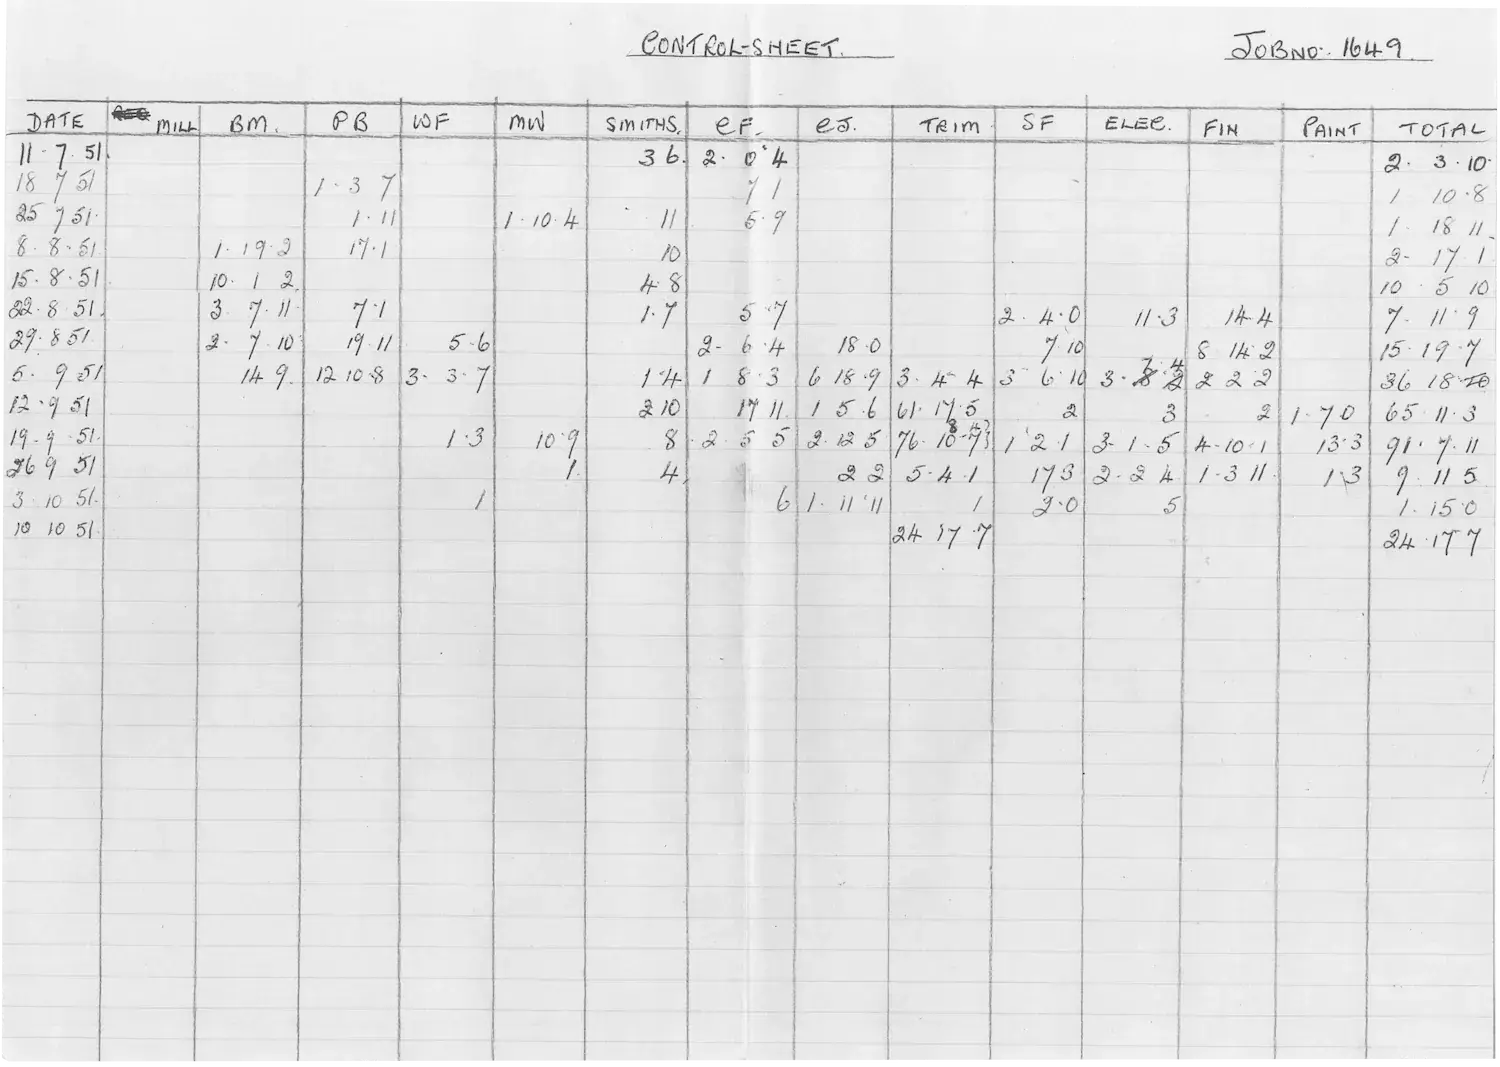 CONTROL-SHEET. JOB NO:. 1649.
DATE MILL BM. PB WF MW SMITHS. CF. CJ. TRIM SF ELEC. FIN PAINT TOTAL
11 - 7. 51. 3 6. 2. 0. 4 2. 3. 10.
18 7 51 1 - 3 7 7 1 1 10.8
25 7 51. 1. 11 1 - 10. 4 11 5. 9 1. 18 11.
8. 8 - 51. 1. 19. 2 17. 1 10 2- 17 1
15. 8. 51 10. 1 2. 4. 8 10 . 5 10
22. 8 51. 3. 7. 11. 7. 1 1. 7 5. 7 2. 4. 0 11. 3 14. 4 7. 11. 9
29. 8 51. 2. 7. 10 19. 11 5. 6 2- 6. 4 18. 0 7 10 8 14. 2 15. 19. 7
5. 9 51 14 9. 12 10. 8 3- 3- 7 1. 4 1 8. 3 6 18. 9 3. 4- 4 3 6. 10 3. 7. 4 2 2 2 36 18. 10
12. 9 51 2 10 17 11. 1 5. 6 61. 17. 5 2 3 2 1. 7 0 65. 11. 3
19. 9 . 51. 1. 3 10. 9 8 2. 5 5 2. 12 5 76. 1 2. 1 3- 1. 5 4-10. 1 13. 3 91. 7. 11
26 9 51 1. 4. 2 2 5. 4. 1 17 3 2. 2 4 1 - 3 11. 1 3 9. 11 5
3. 10 51. 1 6 1. 11. 11 1 2. 0 5 1. 15. 0
10 10 51. 24 17. 7 24. 17 7